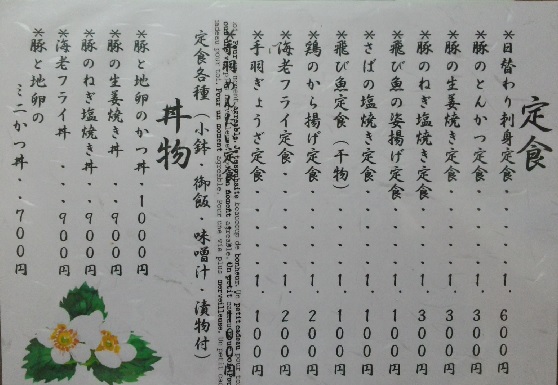 定食
*日替わり刺身定食・・・・1.600円
*豚のとんかつ定食・・・・1.300円
*豚の生姜焼き定食・・・・1.300円
*豚のねぎ塩焼き定食・・・1.300円
*飛び魚の姿揚げ定食・・・1.100円
*さばの塩焼き定食・・・・1.100円
*飛び魚定食(干物)・・・1.100円
*鶏のから揚げ定食・・・・1.200円
*海老フライ定食・・・・・1.200円
*手羽ぎょうざ定食・・・・1.100円
定食各種(小鉢・御飯・味噌汁・漬物付)
Pour un moment agréable. Pour une vie plus merveilleuse.
丼物
*豚と地卵のかつ丼 1000円
*豚の生姜焼き丼・・900円
*豚のねぎ塩焼き丼・・900円
*海老フライ丼・・・900円
*豚と地卵の
ミニかつ丼・・700円